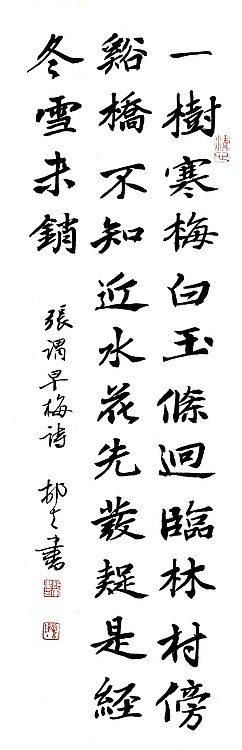 一樹寒梅白玉條迥臨林村傍
谿橋不知近水花先發疑是經
冬雪未銷
張謂早梅詩 書